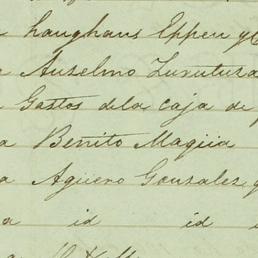 a Langhans Eppen y C
a Anselmo Zurutuza
a Gastos de la caja de
a Benito Maqiia
a Agüero Gonzales y
a id id